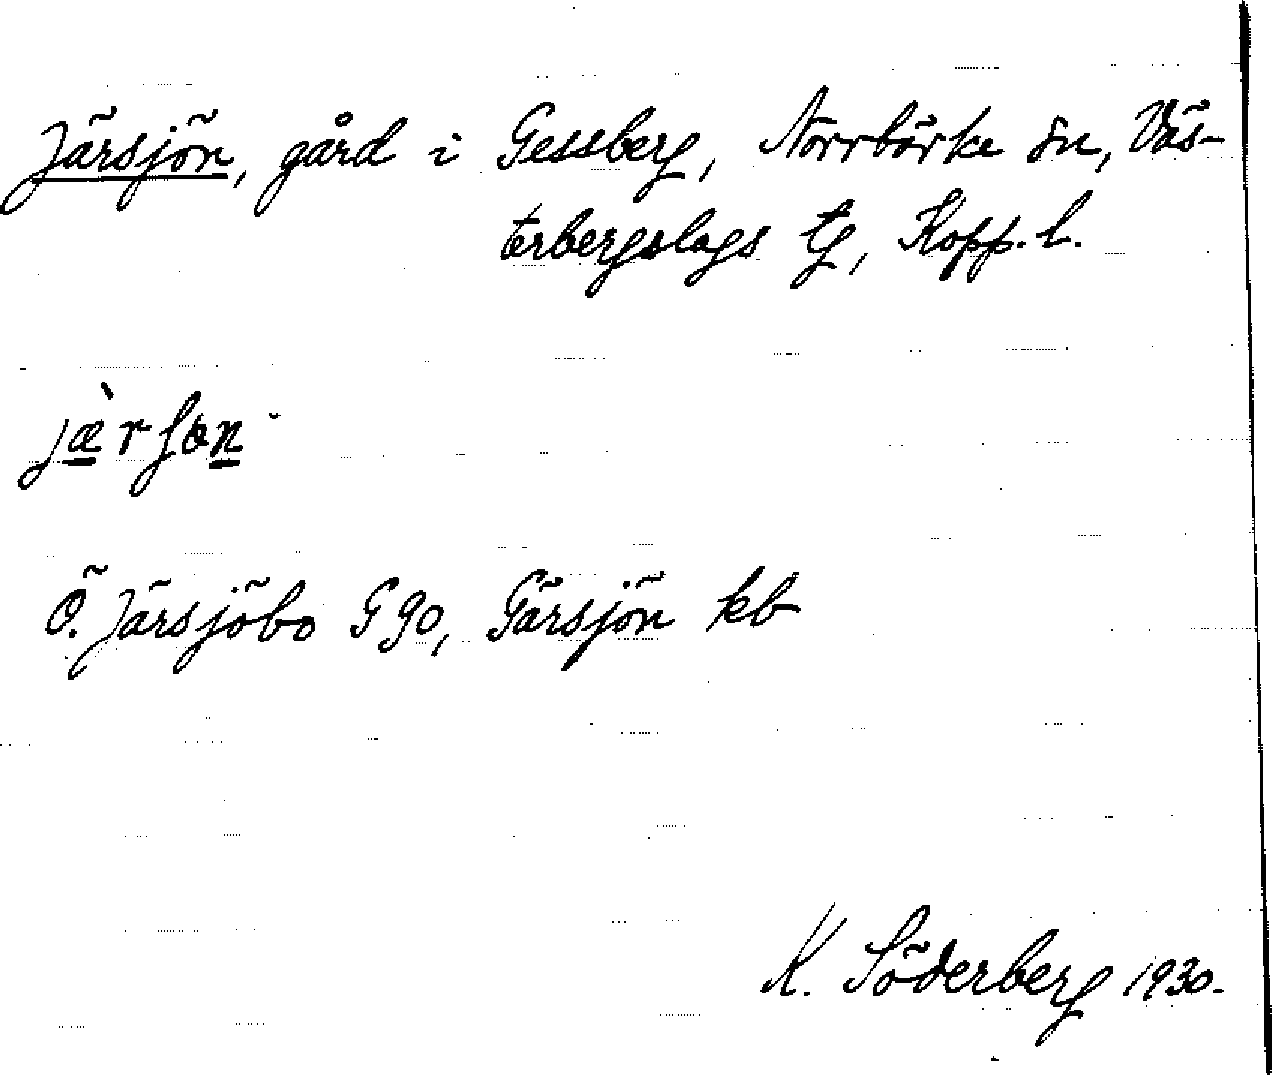 Järsjön, gård i Gessberg, Norrbärke sn, Väs-
terbergslags tg, Kopp. l.
jæ̀rʃøn
Ö. Järsjöbo G 90, Gärsjön kb
K. Söderberg 1930.